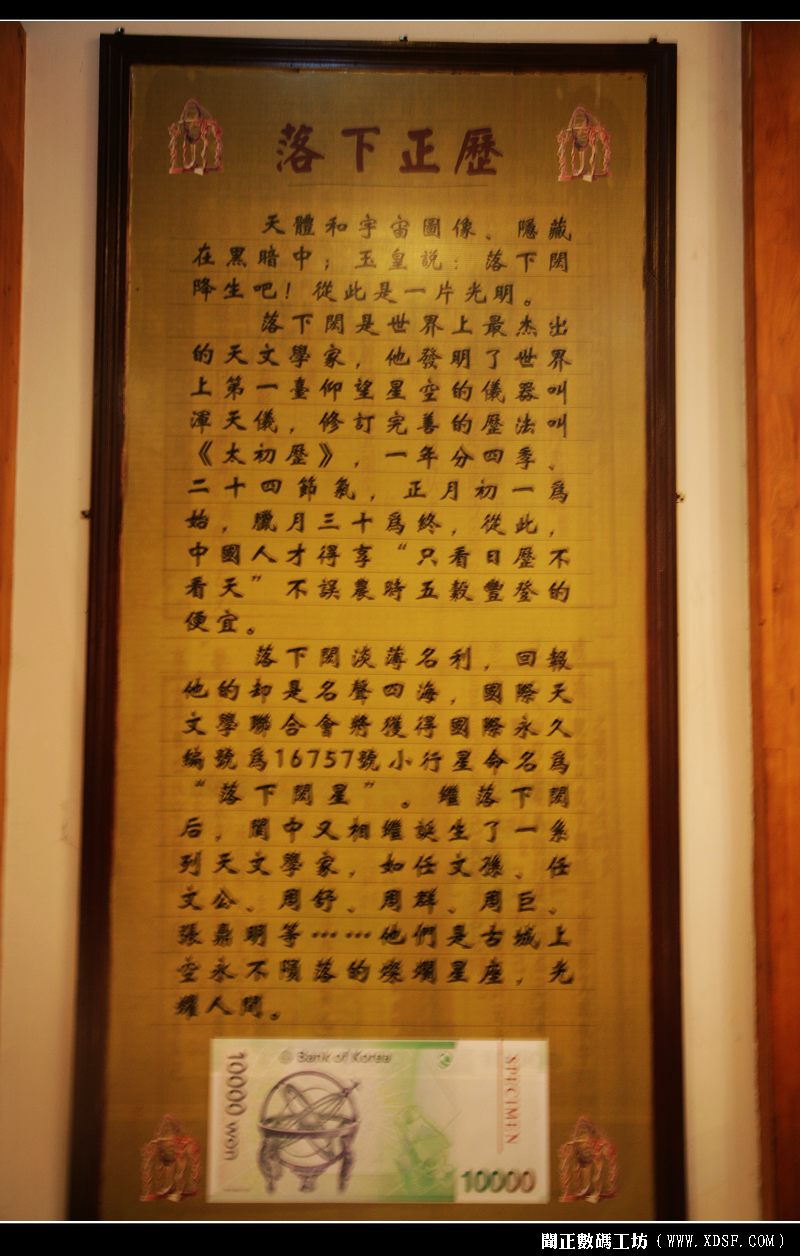 落下正歷
天體和宇宙圖像、隱藏
在黑暗中；玉皇説：落下閎
降生吧！從此是一片光明。
落下閎是世界上最杰出
的天文學家，他發明了世界
上第一臺仰望星空的儀器叫
渾天儀，修訂完善的歷法叫
《太初歷》，一年分四季、
二十四節氣，正月初一爲
始，臘月三十爲終，從此，
中國人才得享“只看日歷不
看天”不誤農時五穀豐登的
便宜。
落下閎淡薄名利，回報
他的却是名聲四海，國際天
文學聯合會將獲得國際永久
編號爲16757號小行星命名爲
“落下閎星”。繼落下閎
后，閬中又相繼誕生了一系
列天文學家，如任文孫、任
文公、周舒、周群、周巨、
張鼎明等……他們是古城上
空永不隕落的燦爛星座，光
耀人間。
Bank of Korea
10000 won
SPECIMEN
10000
聞正數碼工坊（WWW.XDSF.COM）